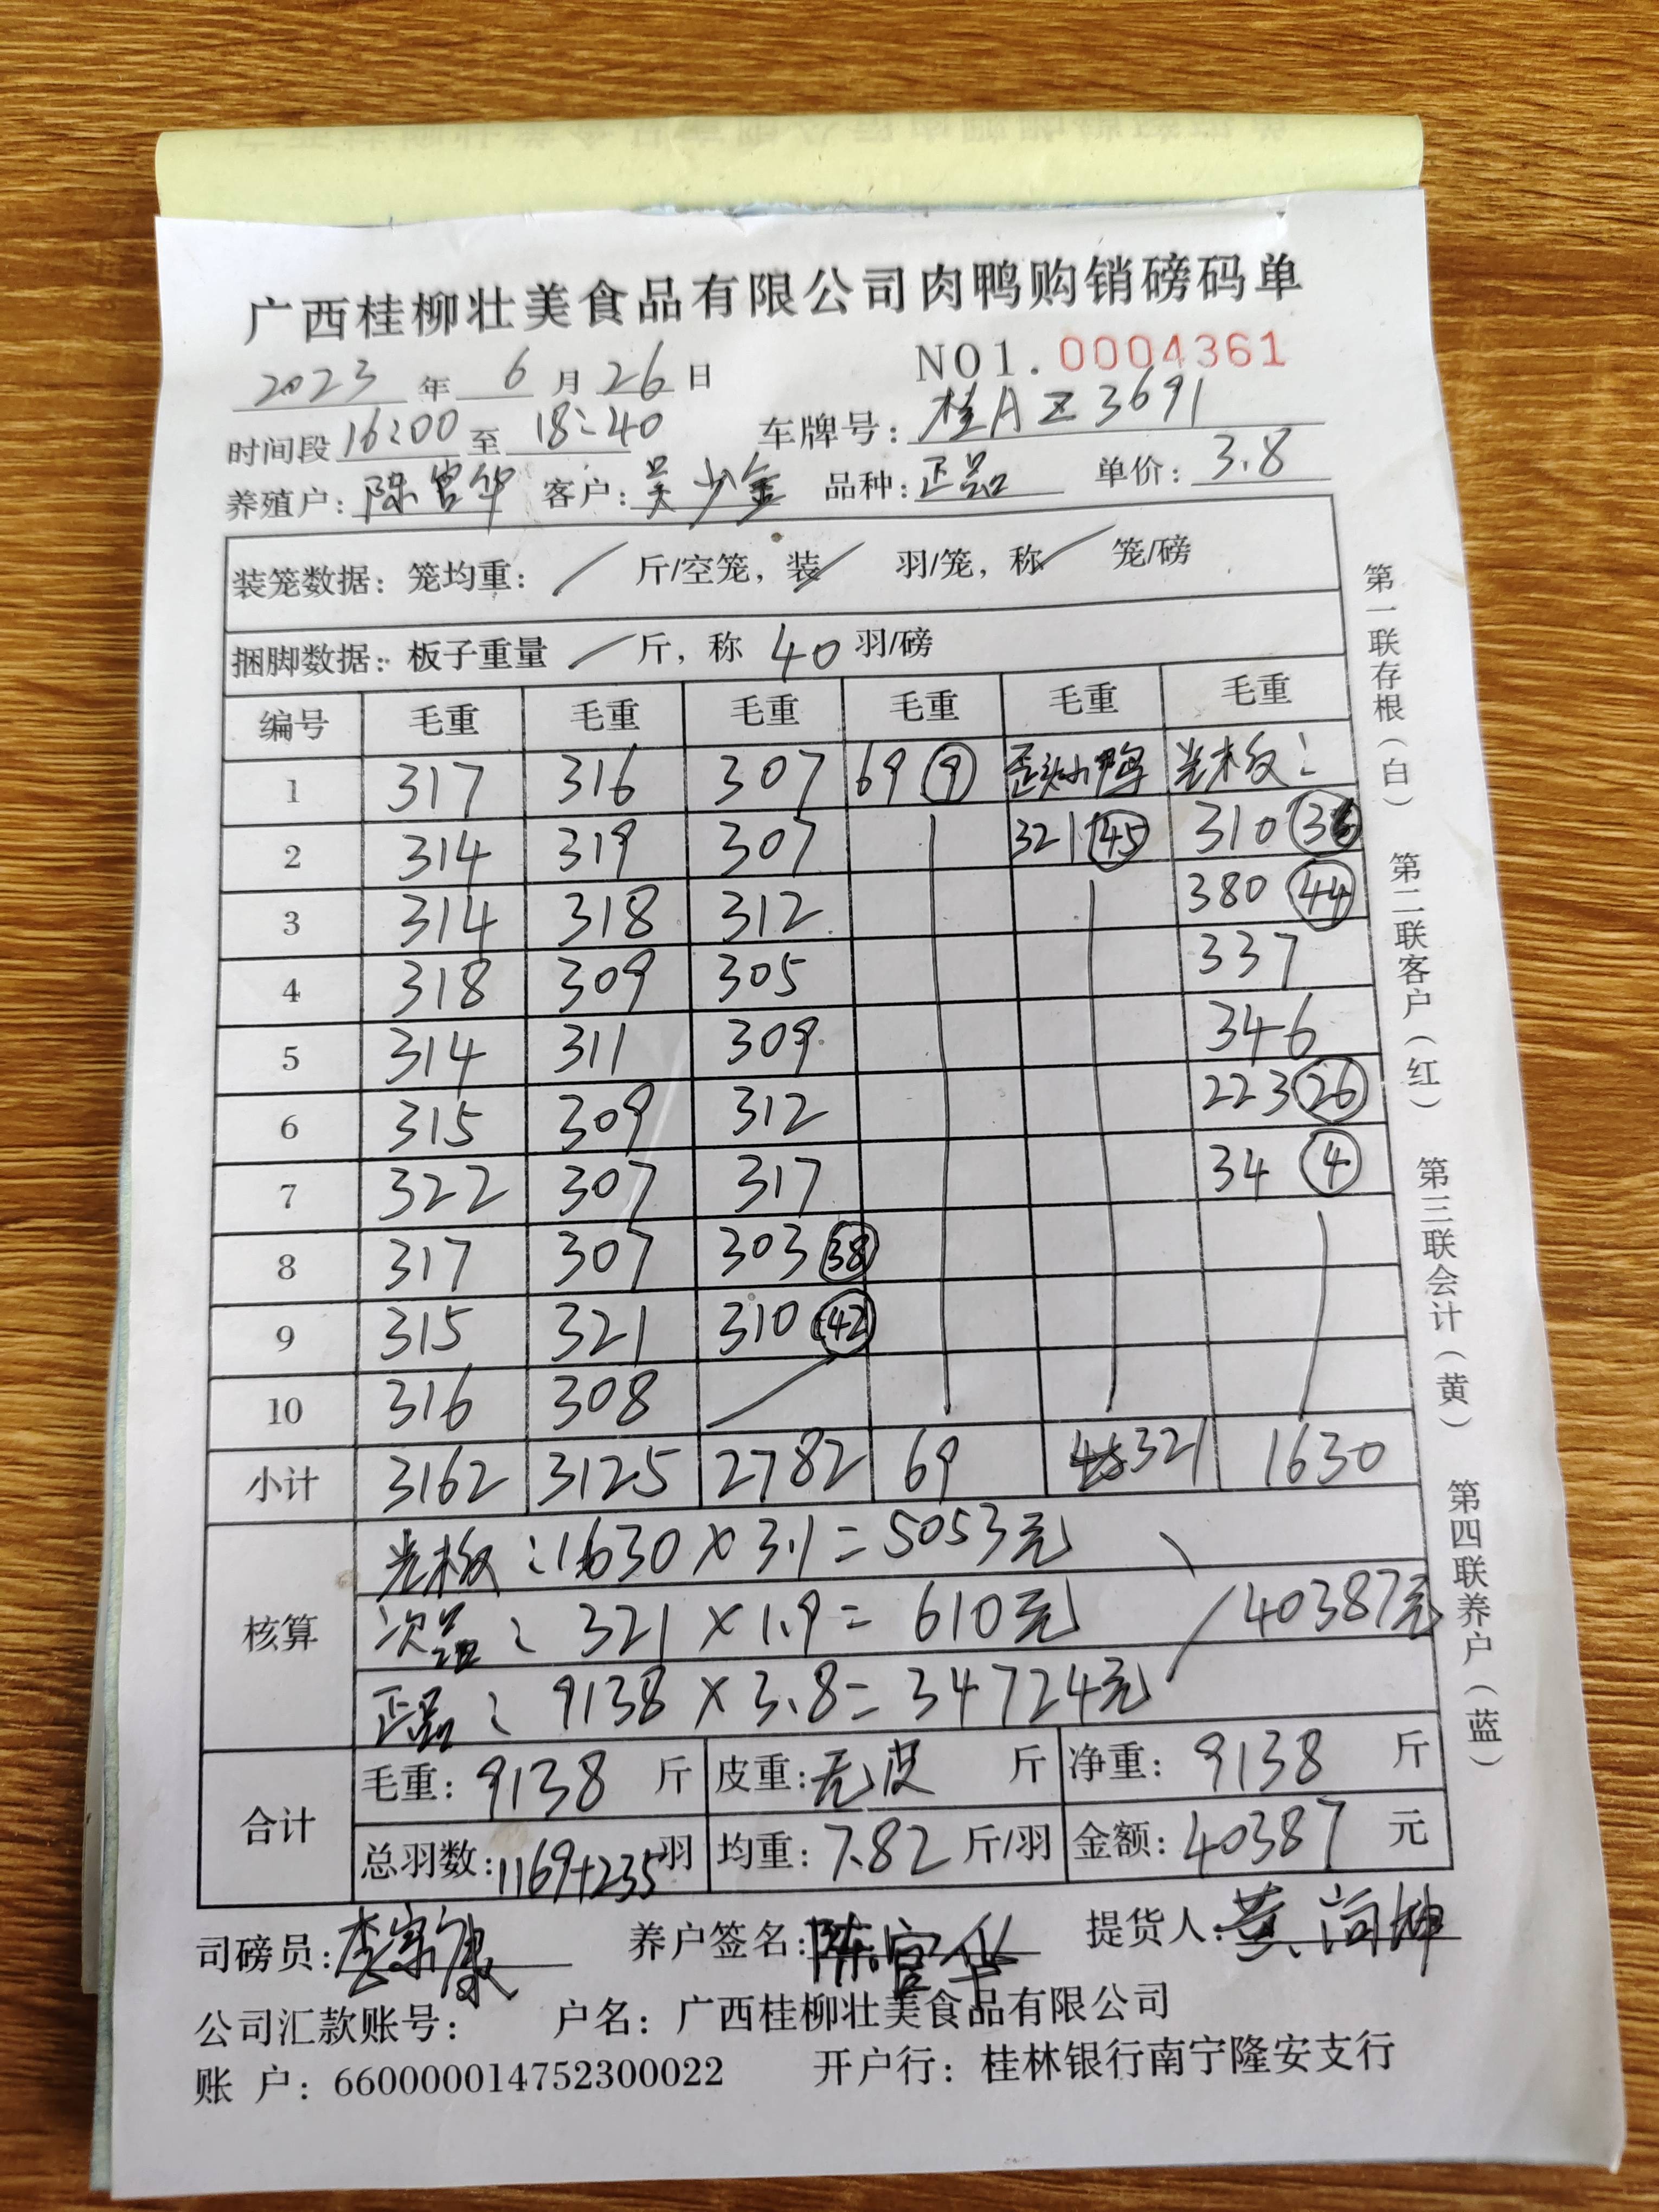 广西桂柳壮美食品有限公司肉鸭购销磅码单
NO1.0004361
2023年6月26日
时间段16:00至18:40 车牌号:桂AZ3691
养殖户:陈官华 客户:吴少金 品种:正品 单价:3.8
装笼数据:笼均重:/斤/空笼,装/羽/笼,称/笼/磅
捆脚数据:板子重量/斤,称40羽/磅
编号 毛重 毛重 毛重 毛重 毛重 毛重
1 317 316 307 69 ⑨ 歪头小鸭 光板:
2 314 319 307 321 ㊺ 310
3 314 318 312 380 ㊹
4 318 309 305 337
5 314 311 309 346
6 315 309 312 223 ㉖
7 322 307 317 34 ④
8 317 307 303 ㊳
9 315 321 310 ㊷
10 316 308 /
小计 3162 3125 2782 69 321 1630
核算 光板:1630×3.1=5053元
次品:321×1.9=610元 40387元
正品:9138×3.8=34724元
合计 毛重:9138斤 皮重:无皮斤 净重:9138斤
总羽数:1169+235羽 均重:7.82斤/羽 金额:40387元
司磅员:李家康 养户签名:陈官华 提货人:黄尚坤
公司汇款账号: 户名:广西桂柳壮美食品有限公司
账 户:660000014752300022 开户行:桂林银行南宁隆安支行
第一联存根(白) 第二联客户(红) 第三联会计(黄) 第四联养户(蓝)